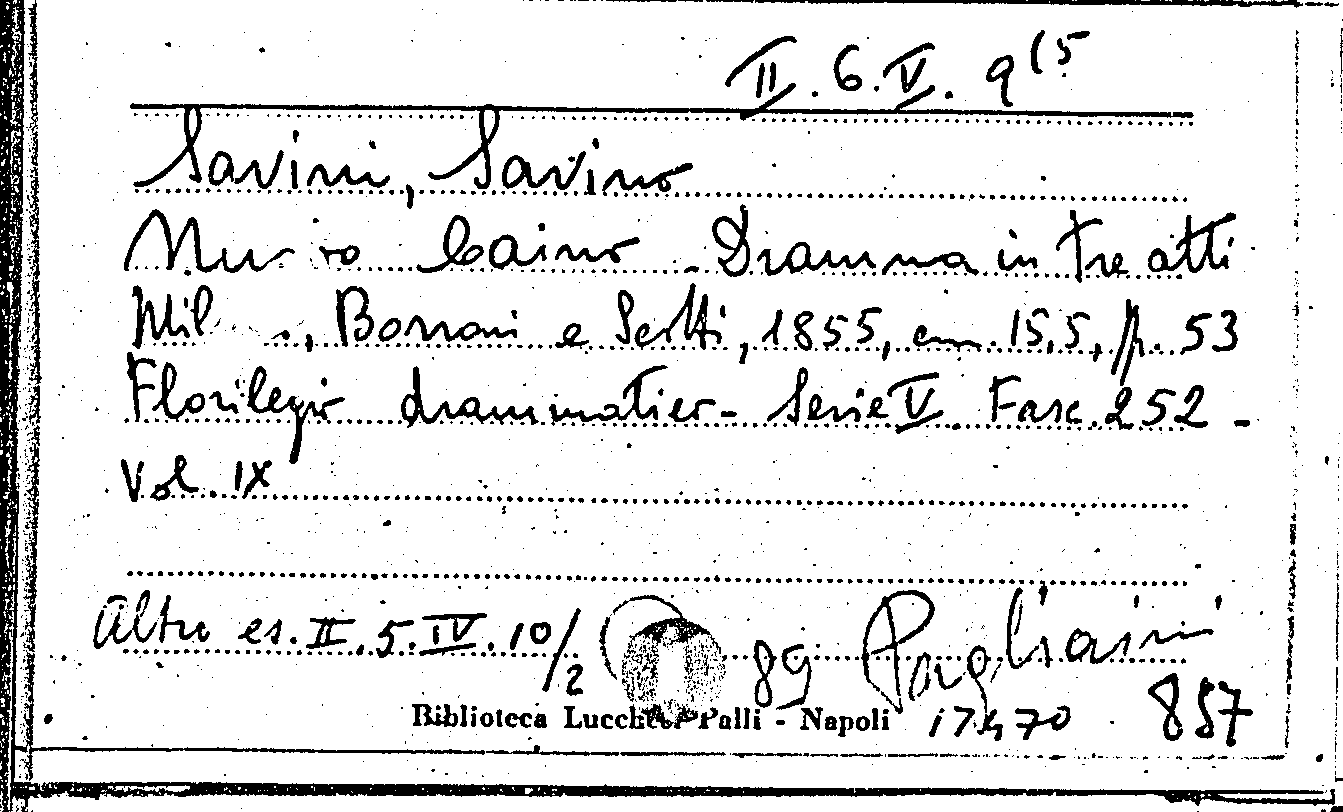 II. 6. V. 9 (5
Savini, Savino
Caino Dramma in tre atti
Borroni e Scotti, 1855, cm. 15,5, p. 53
Florilegio drammatico - Serie V. Fasc. 252 -
Vol. IX
Altro es. II. 5. IV. 10/2
89 Pagliaini
Biblioteca Lucchesi Palli - Napoli
17470
857